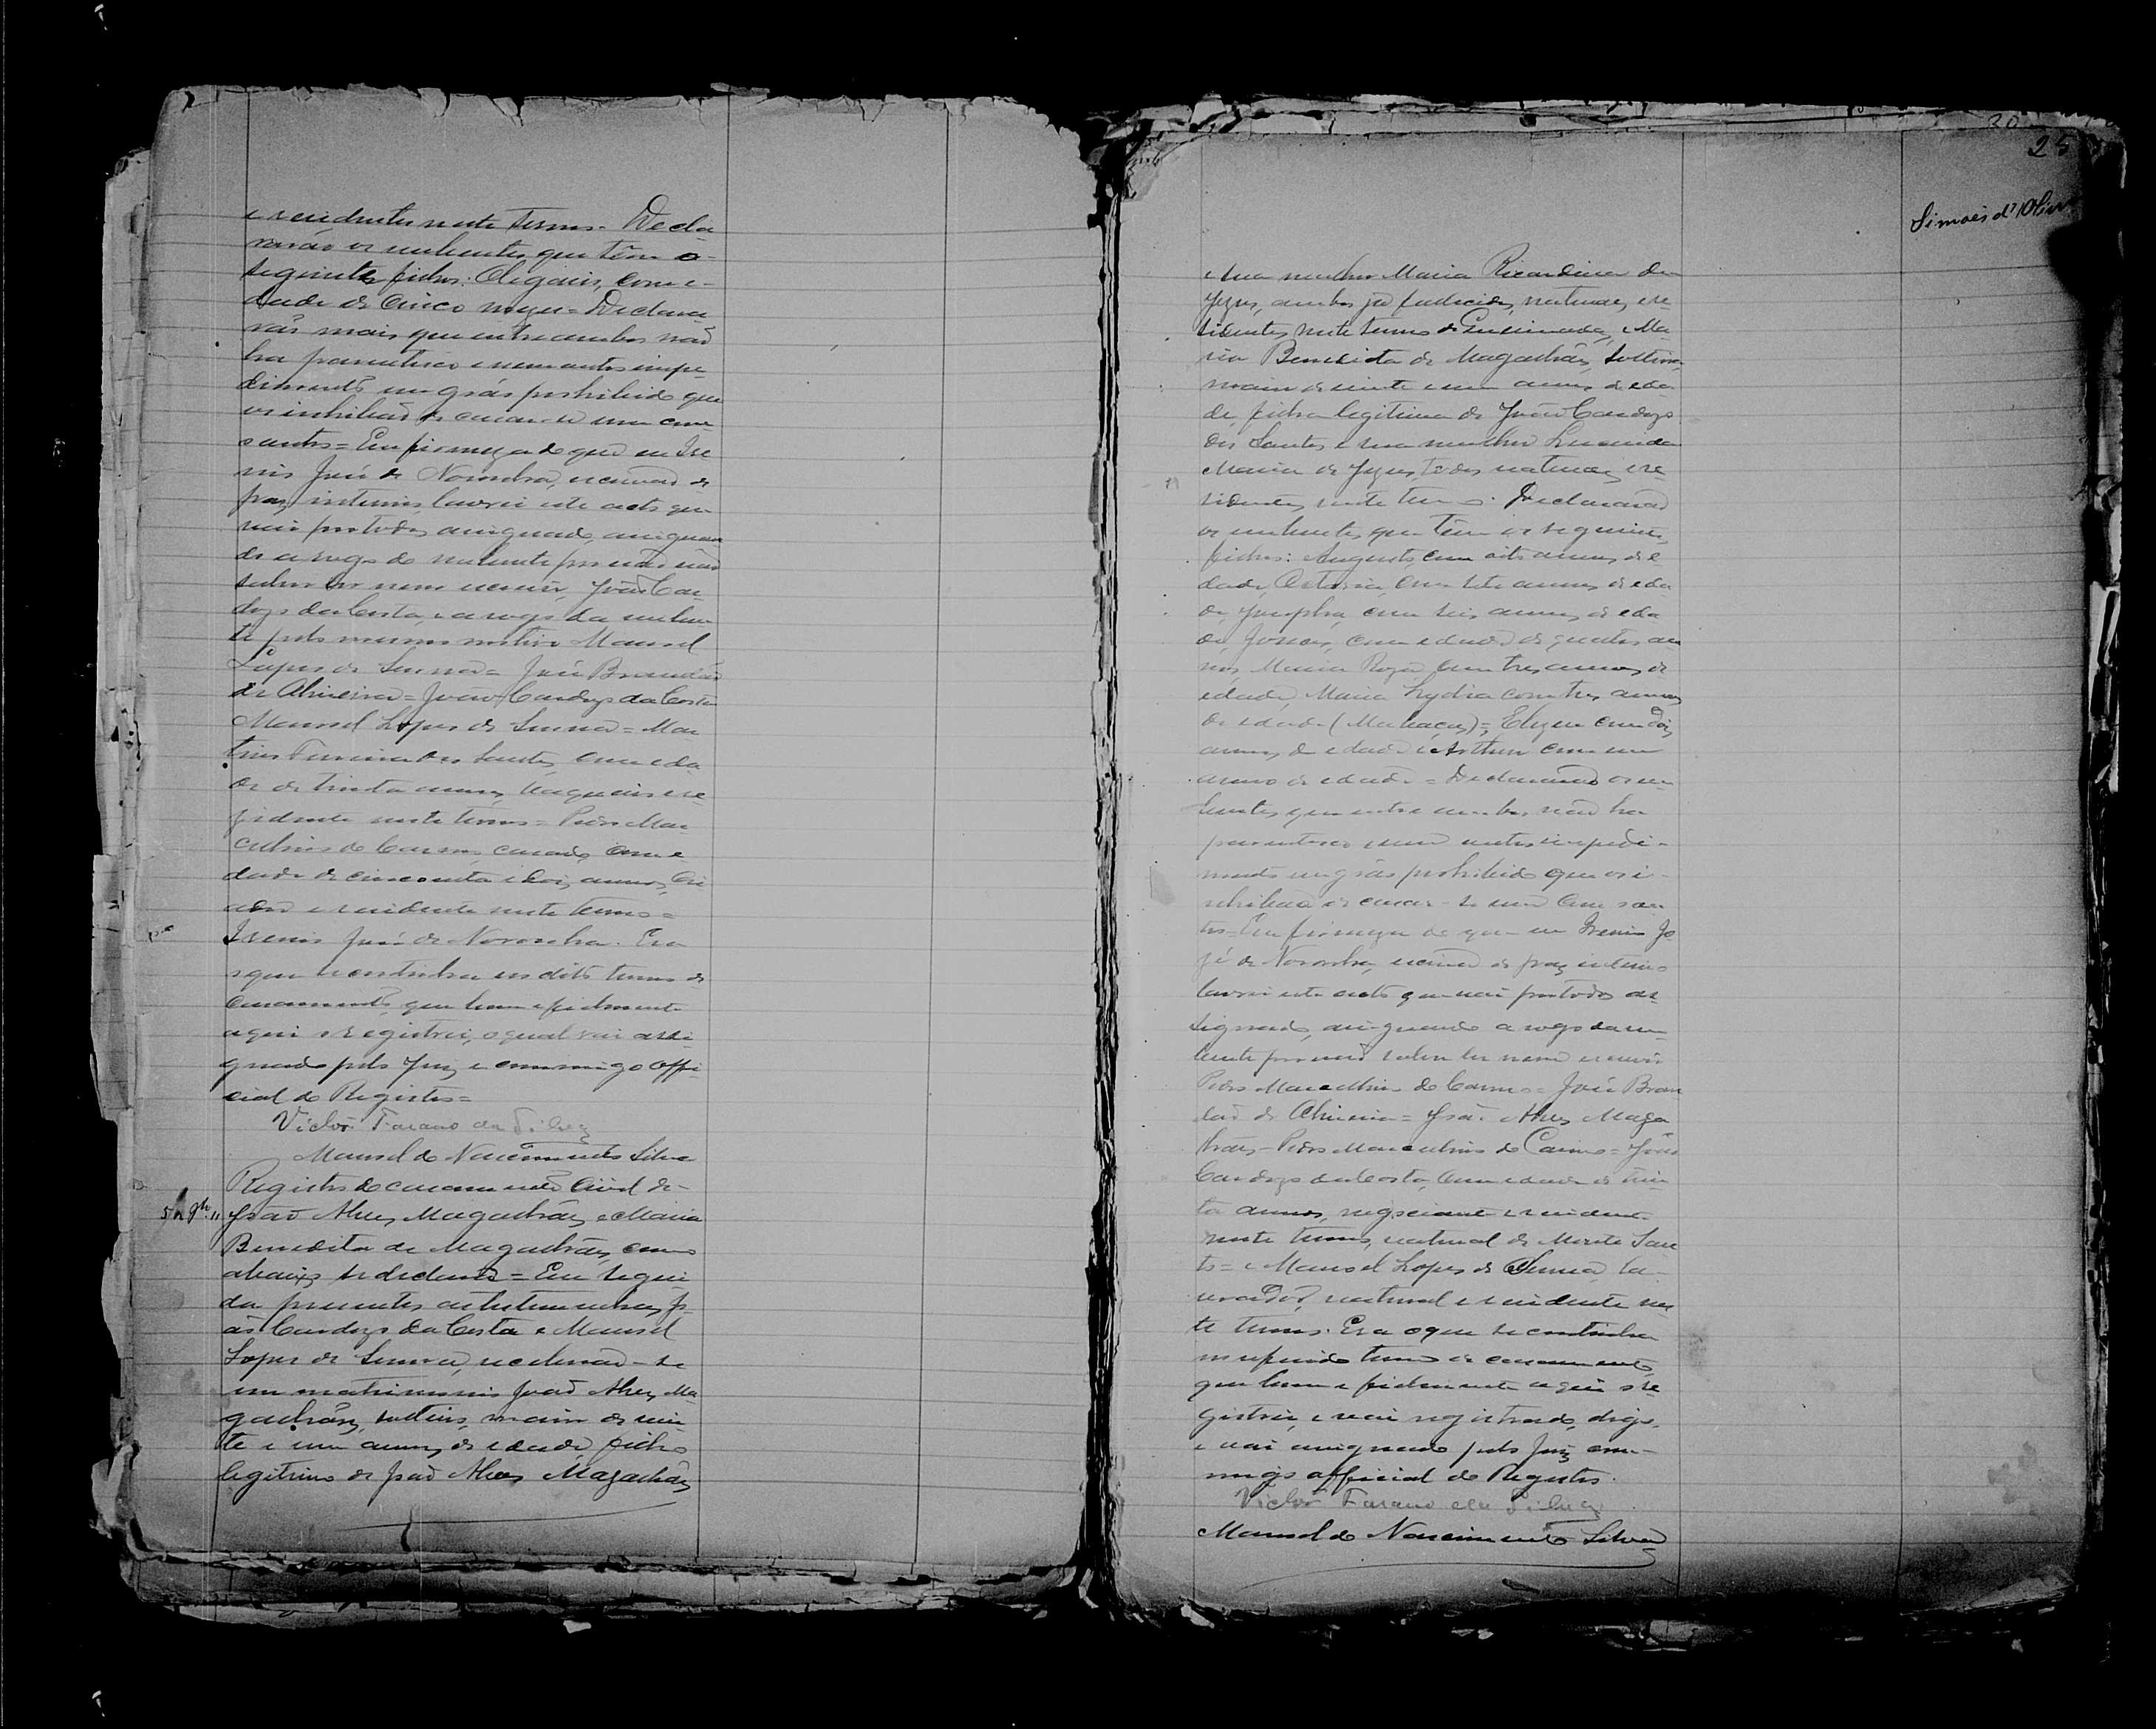 e residentes neste termo. Decla
rarão os nubentes que têm o
seguinte filho: Olegario, com e-
dade de cinco mezes = Declara
rão mais que entre ambos não
ha parentesco e nem outro impe-
dimento em gráo prohibido que
os inhibão de casar-se um com
outro = Em firmeza do que eu Ire
nio José de Noronha, escrivão de
paz interino, lavrei este acto que
vai por todos assignado, assignan
do a rogo do nubente por não
saber ler nem escrever, João Car
dozo da Costa, e a rogo da nuben
te pelo mesmo motivo Manoel
Lopes de = José Brandão
de Almeida = João Cardozo da Costa
Manoel Lopes de = Mar
tins dos Santos, com eda
de de trinta annos, vaqueiro e re
sidente neste termo = Pedro Mar
cellino do Carmo, casado, com e
dade de cincoenta e dois annos, cri
ador e residente neste termo =
Irenio José de Noronha. Era
o que se continha em dito termo de
casamento, que bem e fielmente
aqui o registrei, o qual vai assi
gnado pelo Juiz e commigo offi
cial do Registro =
Victor da Silva
Manoel do Nascimento Silva
Registro do casamento Civil de
João Alves Magalhães e Maria
Benedita de Magalhães, como
abaixo se declara = Em segui
da presentes as testemunhas Jo
ão Cardozo da Costa e Manoel
Lopes de receberão-se
em matrimonio João Alves Ma
galhães, solteiro, maior de vin
te e um annos de edade, filho
legitimo de João Alves Magalhães
25
Simões d'Oliv
e sua mulher Maria Ricardina de
Jezus, ambos já fallecidos, naturaes e re
sidentes neste termo de e Ma
ria Benedita de Magalhães, solteira,
maior de vinte e um annos de eda
de, filha legitima de João Cardozo
dos Santos e sua mulher
Maria de Jezus, todos naturaes e re
sidentes neste termo. Declararão
os nubentes que têm os seguintes
filhos: Augusto, com oito annos de e
dade, Octavia, com sete annos de eda
de, Josepha, com seis annos de eda
de, Jonas, com edade de quatro an
nos, Maria Roza, com tres annos de
edade, Maria Lydia com tres annos
de edade = Elizeu com dois
annos de edade e Arthur com um
anno de edade = Declararão os nu
bentes que entre ambos não ha
parentesco e nem outro impedi-
mento em gráo prohibido que os i-
nhibão de casar-se um com ou
tro = Em firmeza do que eu Irenio Jo
sé de Noronha, escrivão de paz interino
lavrei este acto que vai por todos as
signado, assignando a rogo da nu
bente por não saber ler nem escrever
Pedro Marcellino do Carmo = José Bran
dão de Almeida = João Alves Maga
lhães = Pedro Marcellino do Carmo = João
Cardozo da Costa, com edade de trin
ta annos, negociante e residente
neste termo, natural de Monte San
to = e Manoel Lopes de la
vrador, natural e residente nes
te termo. Era o que se continha
no referido termo de casamento,
que bem e fielmente aqui o re
gistrei, e vai registrado, digo,
e vai assignado pelo Juiz com-
migo official do Registro.
Victor da Silva
Manoel do Nascimento Silva